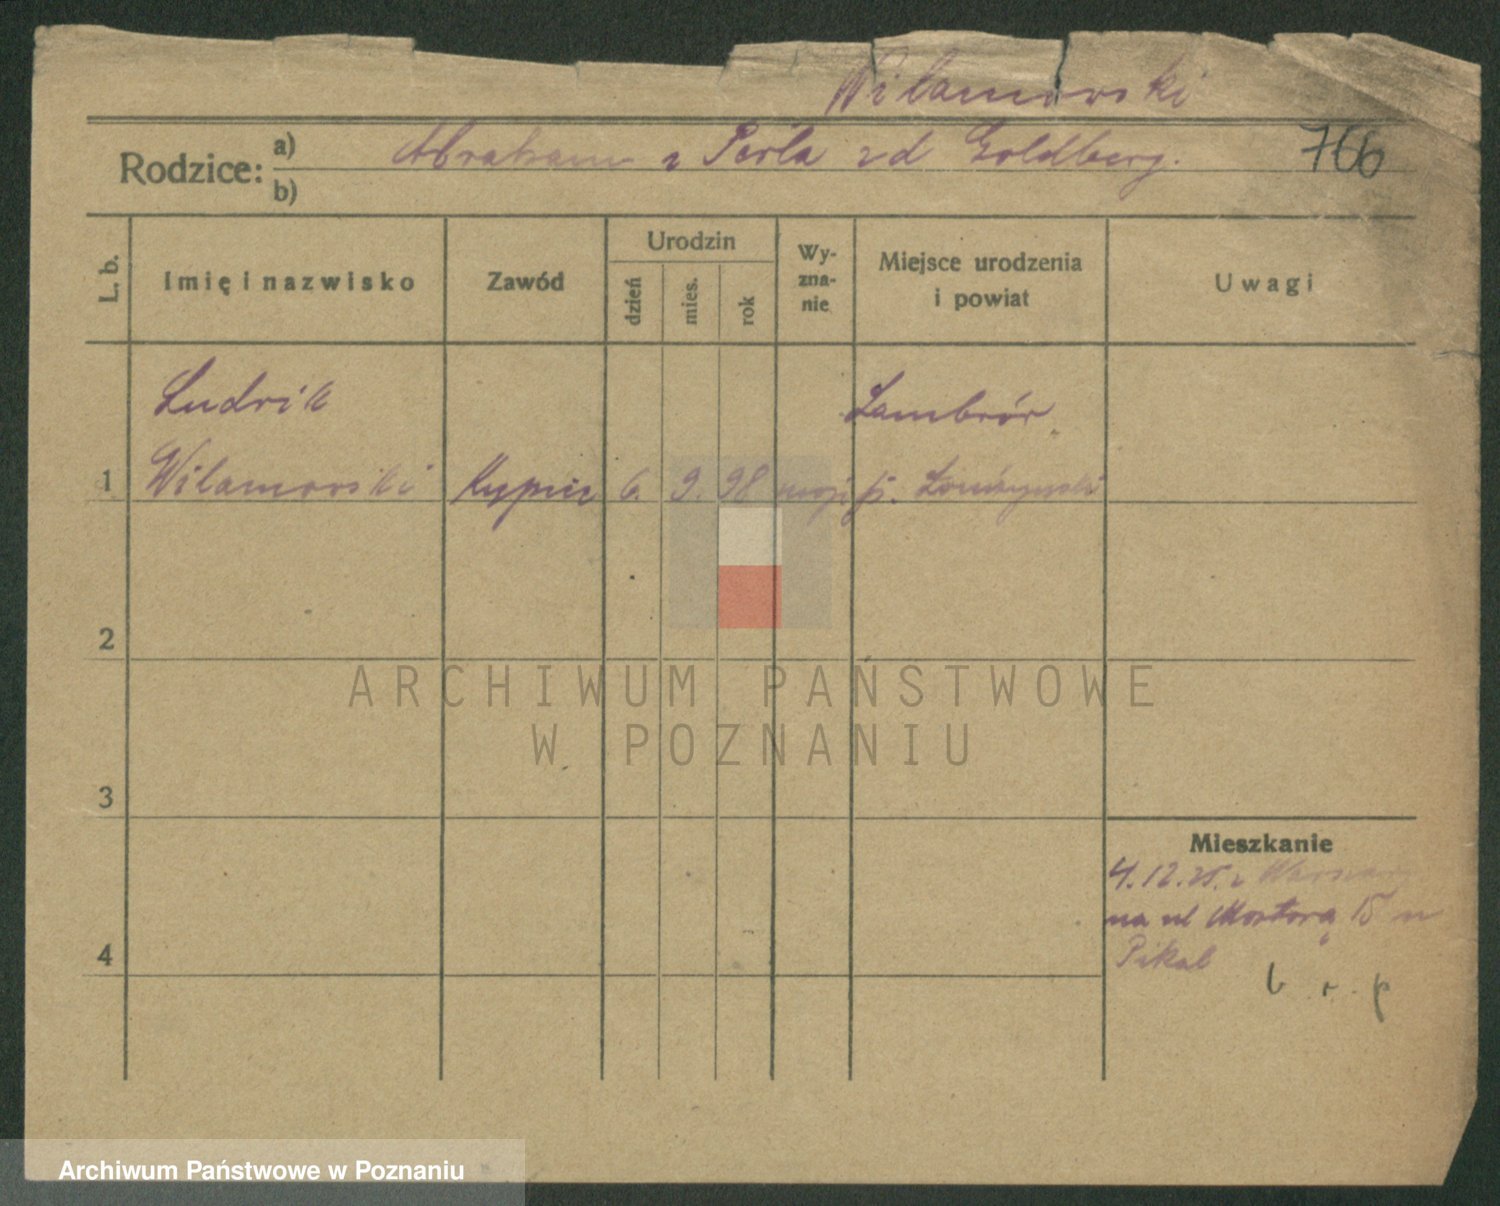 Wilamowski
Rodzice: a) Abraham i Perla zd Goldberg.
b)
766
L. b. Imię i nazwisko Zawód Urodzin dzień mies. rok Wy-zna-nie Miejsce urodzenia i powiat Uwagi
Ludwik Zambrów
1 Wilamowski Kupiec 6. 9. 98 mojż p. Łomżyński
2
ARCHIWUM PAŃSTWOWE
W POZNANIU
3
Mieszkanie
4.12.25. z Warszawy
na ul Mostową 15 u
4 Pikal
b. r. p
Archiwum Państwowe w Poznaniu